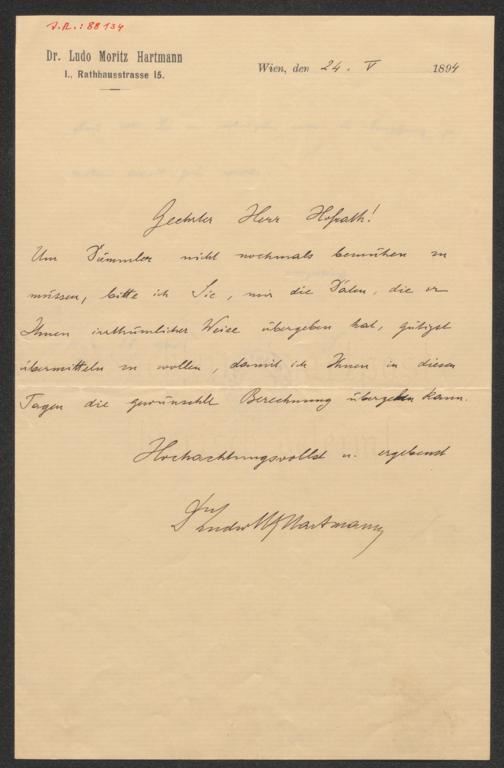 J.N.: 88134
Dr. Ludo Moritz Hartmann
I., Rathhausstrasse 15.
Wien, den 24. V 1894
Geehrter Herr Hofrath!
Um Dümmler nicht nochmals bemühen zu
müssen, bitte ich Sie, mir die Daten, die er
Ihnen irrthümlicher Weise übergeben hat, gütigst
übermitteln zu wollen, damit ich Ihnen in diesen
Tagen die gewünschte Berechnung übergeben kann.
Hochachtungsvollst u. ergebenst
Dr Ludo M Hartmann